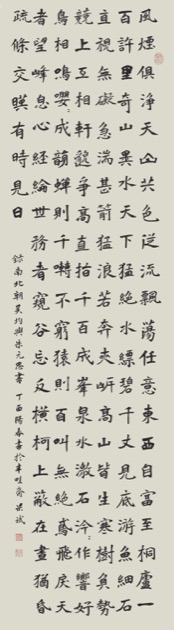 風煙俱淨天山共色從流飄蕩任意東西自富至桐廬一
百許里奇山異水天下獨絕水皆縹碧千丈見底游魚細石
直視無礙急湍甚箭猛浪若奔夾岸高山皆生寒樹負勢
競上互相軒邈爭高直指千百成峯泉水激石泠〻作響好
鳥相鳴嚶〻成韻蟬則千囀不窮猿則百叫無絕鳶飛戾天
者望峰息心經綸世務者窺谷忘反橫柯上蔽在晝猶昏
疏條交映有時見日
錄南北朝吳均與朱元思書 丁酉陽春書於